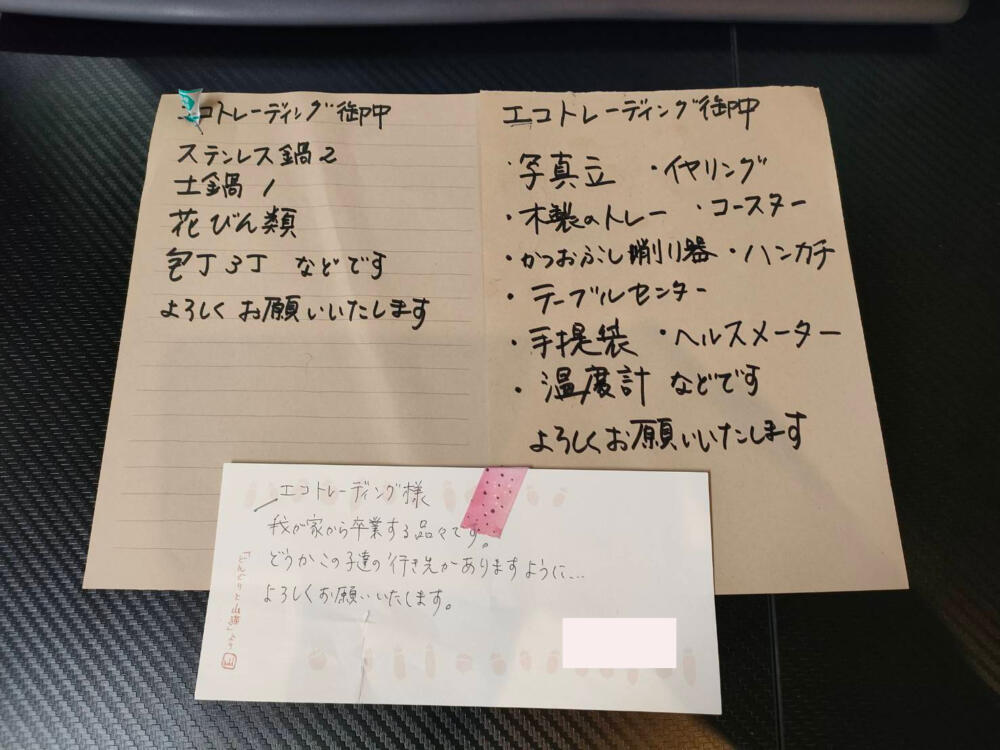 エコトレーディング御中
ステンレス鍋2
土鍋 1
花びん類
包丁3丁 などです
よろしくお願いいたします
エコトレーディング御中
・写真立 ・イヤリング
・木製のトレー ・コースター
・かつおぶし削り器 ・ハンカチ
・テーブルセンター
・手提袋 ・ヘルスメーター
・温度計 などです
よろしくお願いいたします
エコトレーディング様
我が家から卒業する品々です。
どうかこの子達の行き先がありますように...
よろしくお願いいたします。
「どんぐりと山猫」より
山